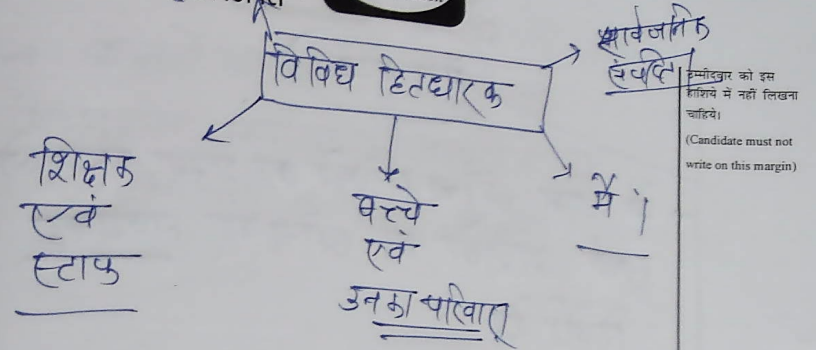 विविध हितधारक
सार्वजनिक
संपत्ति
शिक्षक
एवं
स्टाफ
बच्चे
एवं
उनका परिवार
मैं।
उम्मीदवार को इस
हाशिये में नहीं लिखना
चाहिये।
(Candidate must not
write on this margin)